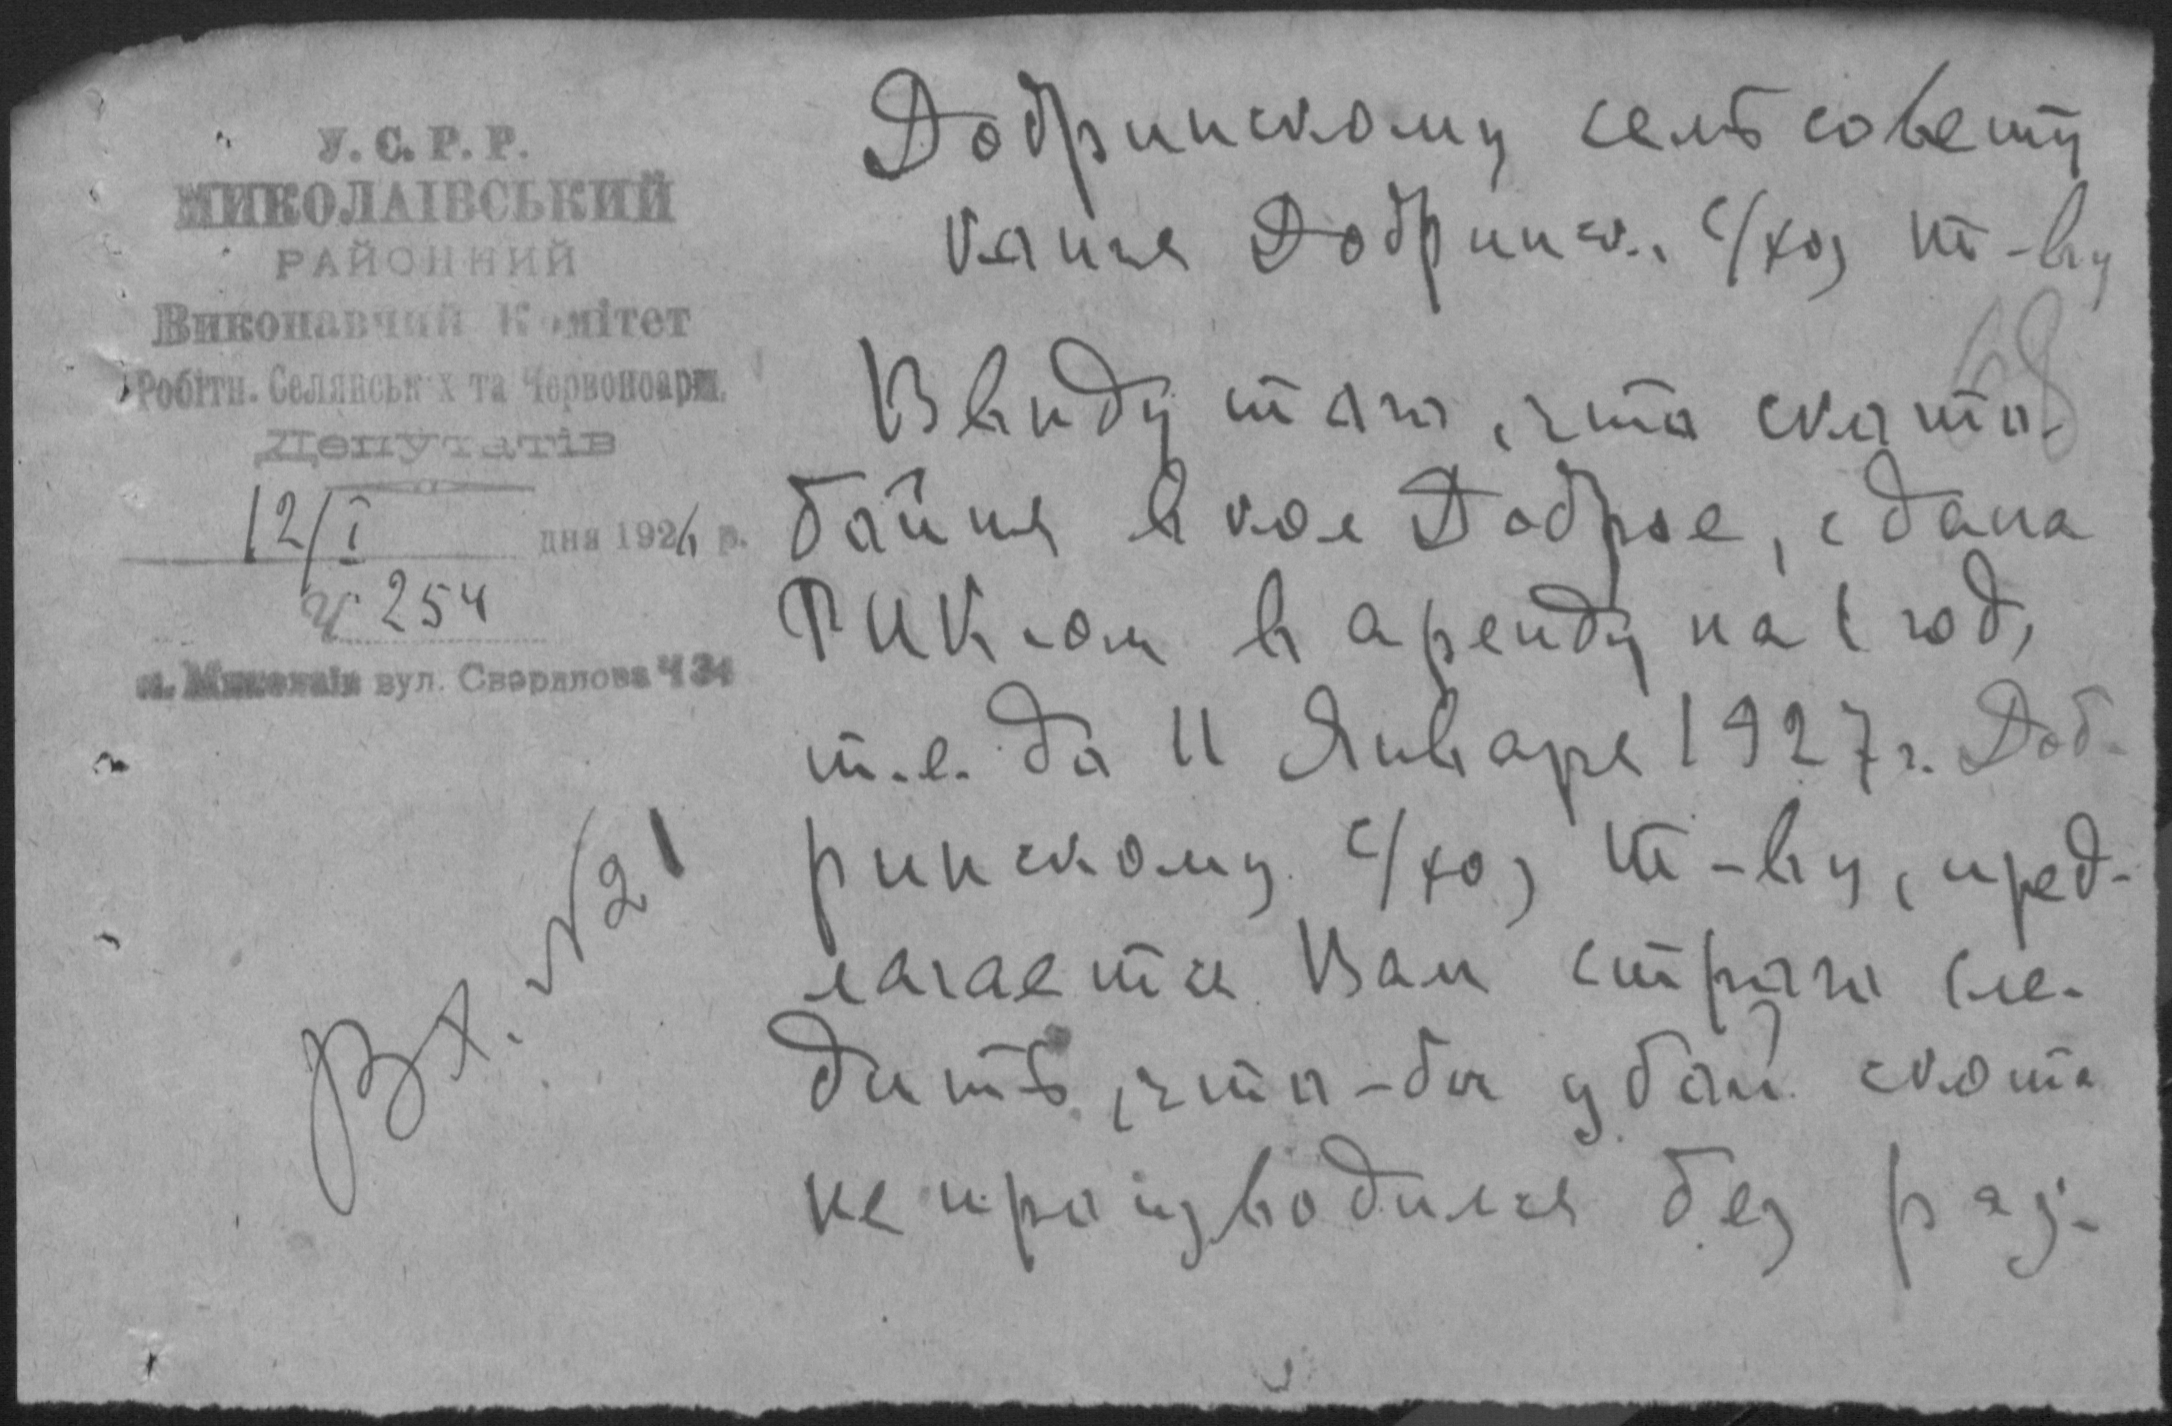 У. С. Р. Р.
МИКОЛАІВСЬКИЙ
РАЙОННИЙ
Виконавчий Комітет
Робітн. Селянських та Червоноарм.
Депутатів
12/I дня 1926 р.
Ч 254
м. Миколаів вул. Свердлова Ч 34
Вх. №21
Добринскому сельсовету
копия Добринск. с/хоз т-ву
68
Ввиду того, что ското-
бойня в кол Доброе, сдана
РИК-ом в аренду на 1 год,
т.е. до 11 Января 1927 г. Доб-
ринскому с/хоз т-ву, пред-
лагается Вам строго сле-
дить, что-бы убой скота
не производился без раз-